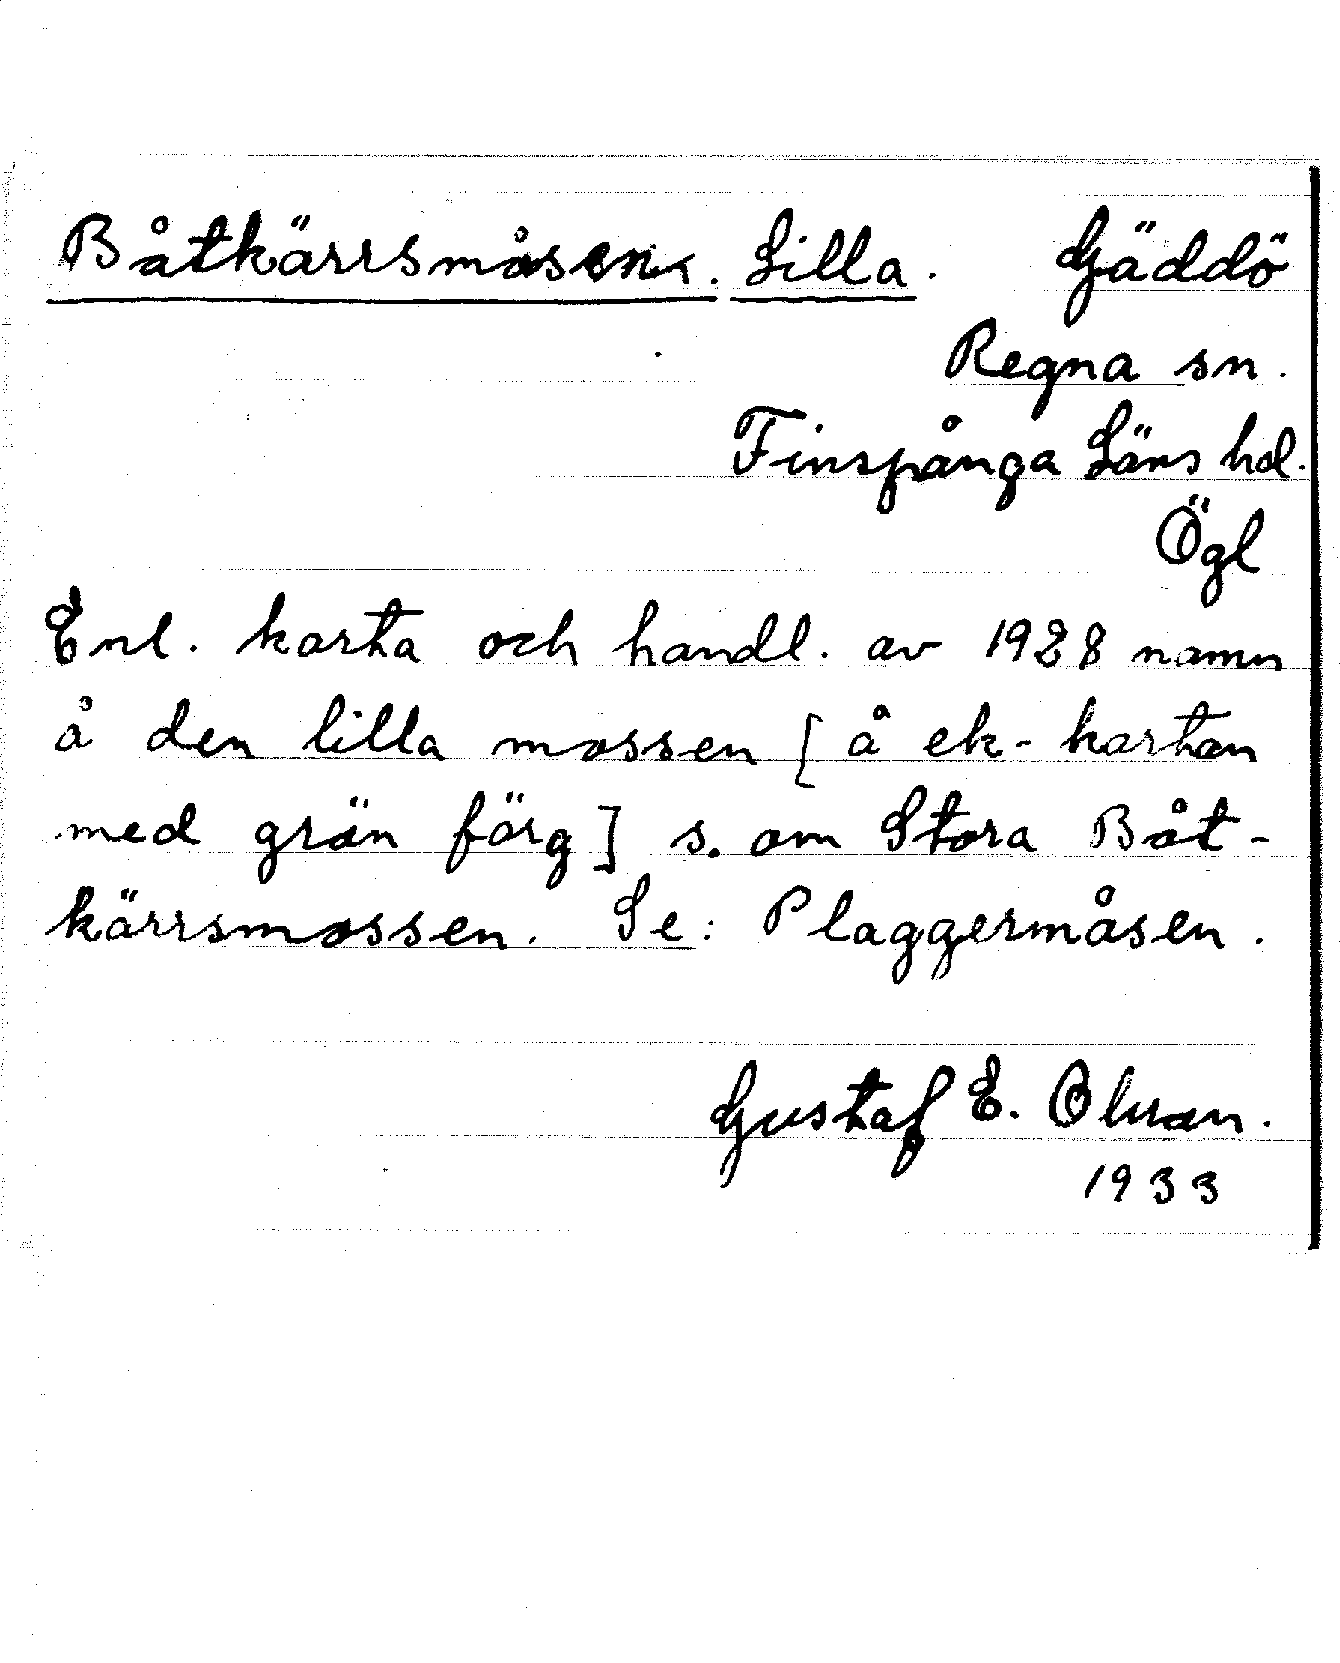 Båtkärrsmåsen. Lilla. Gäddö
Regna sn.
Finspånga Läns hd.
Ögl
Enl. karta och handl. av 1928 namn
å den lilla mossen [å ek-kartan
med grön färg] s. om Stora Båt-
kärrsmossen. Se: Plaggermåsen.
Gustaf E. Olman.
1933